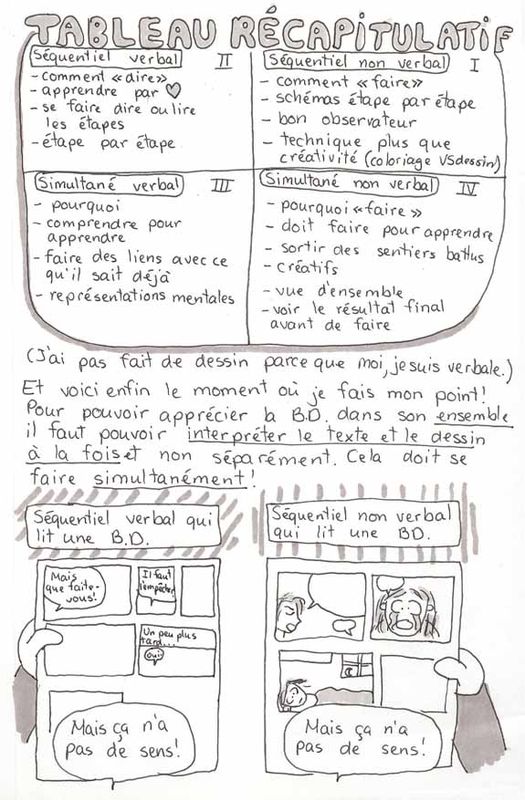 TABLEAU RÉCAPITULATIF
Séquentiel verbal II
- comment «dire»
- apprendre par ♡
- se faire dire ou lire
les étapes
- étape par étape
Séquentiel non verbal I
- comment «faire»
- schémas étape par étape
- bon observateur
- technique plus que
créativité (coloriage VS dessin)
Simultané verbal III
- pourquoi
- comprendre pour
apprendre
- faire des liens avec ce
qu'il sait déjà
- représentations mentales
Simultané non verbal IV
- pourquoi «faire»
- doit faire pour apprendre
- sortir des sentiers battus
- créatifs
- vue d'ensemble
- voir le résultat final
avant de faire
(J'ai pas fait de dessin parce que moi, je suis verbale.)
Et voici enfin le moment où je fais mon point!
Pour pouvoir apprécier la B.D. dans son ensemble
il faut pouvoir interpréter le texte et le dessin
à la fois et non séparément. Cela doit se
faire simultanément!
Séquentiel verbal qui
lit une B.D.
Mais
que faite-
vous!
Il faut
l'empêcher
Un peu plus
tard...
Oui
Mais ça n'a
pas de sens!
Séquentiel non verbal
qui lit une BD.
Mais ça n'a
pas de sens!